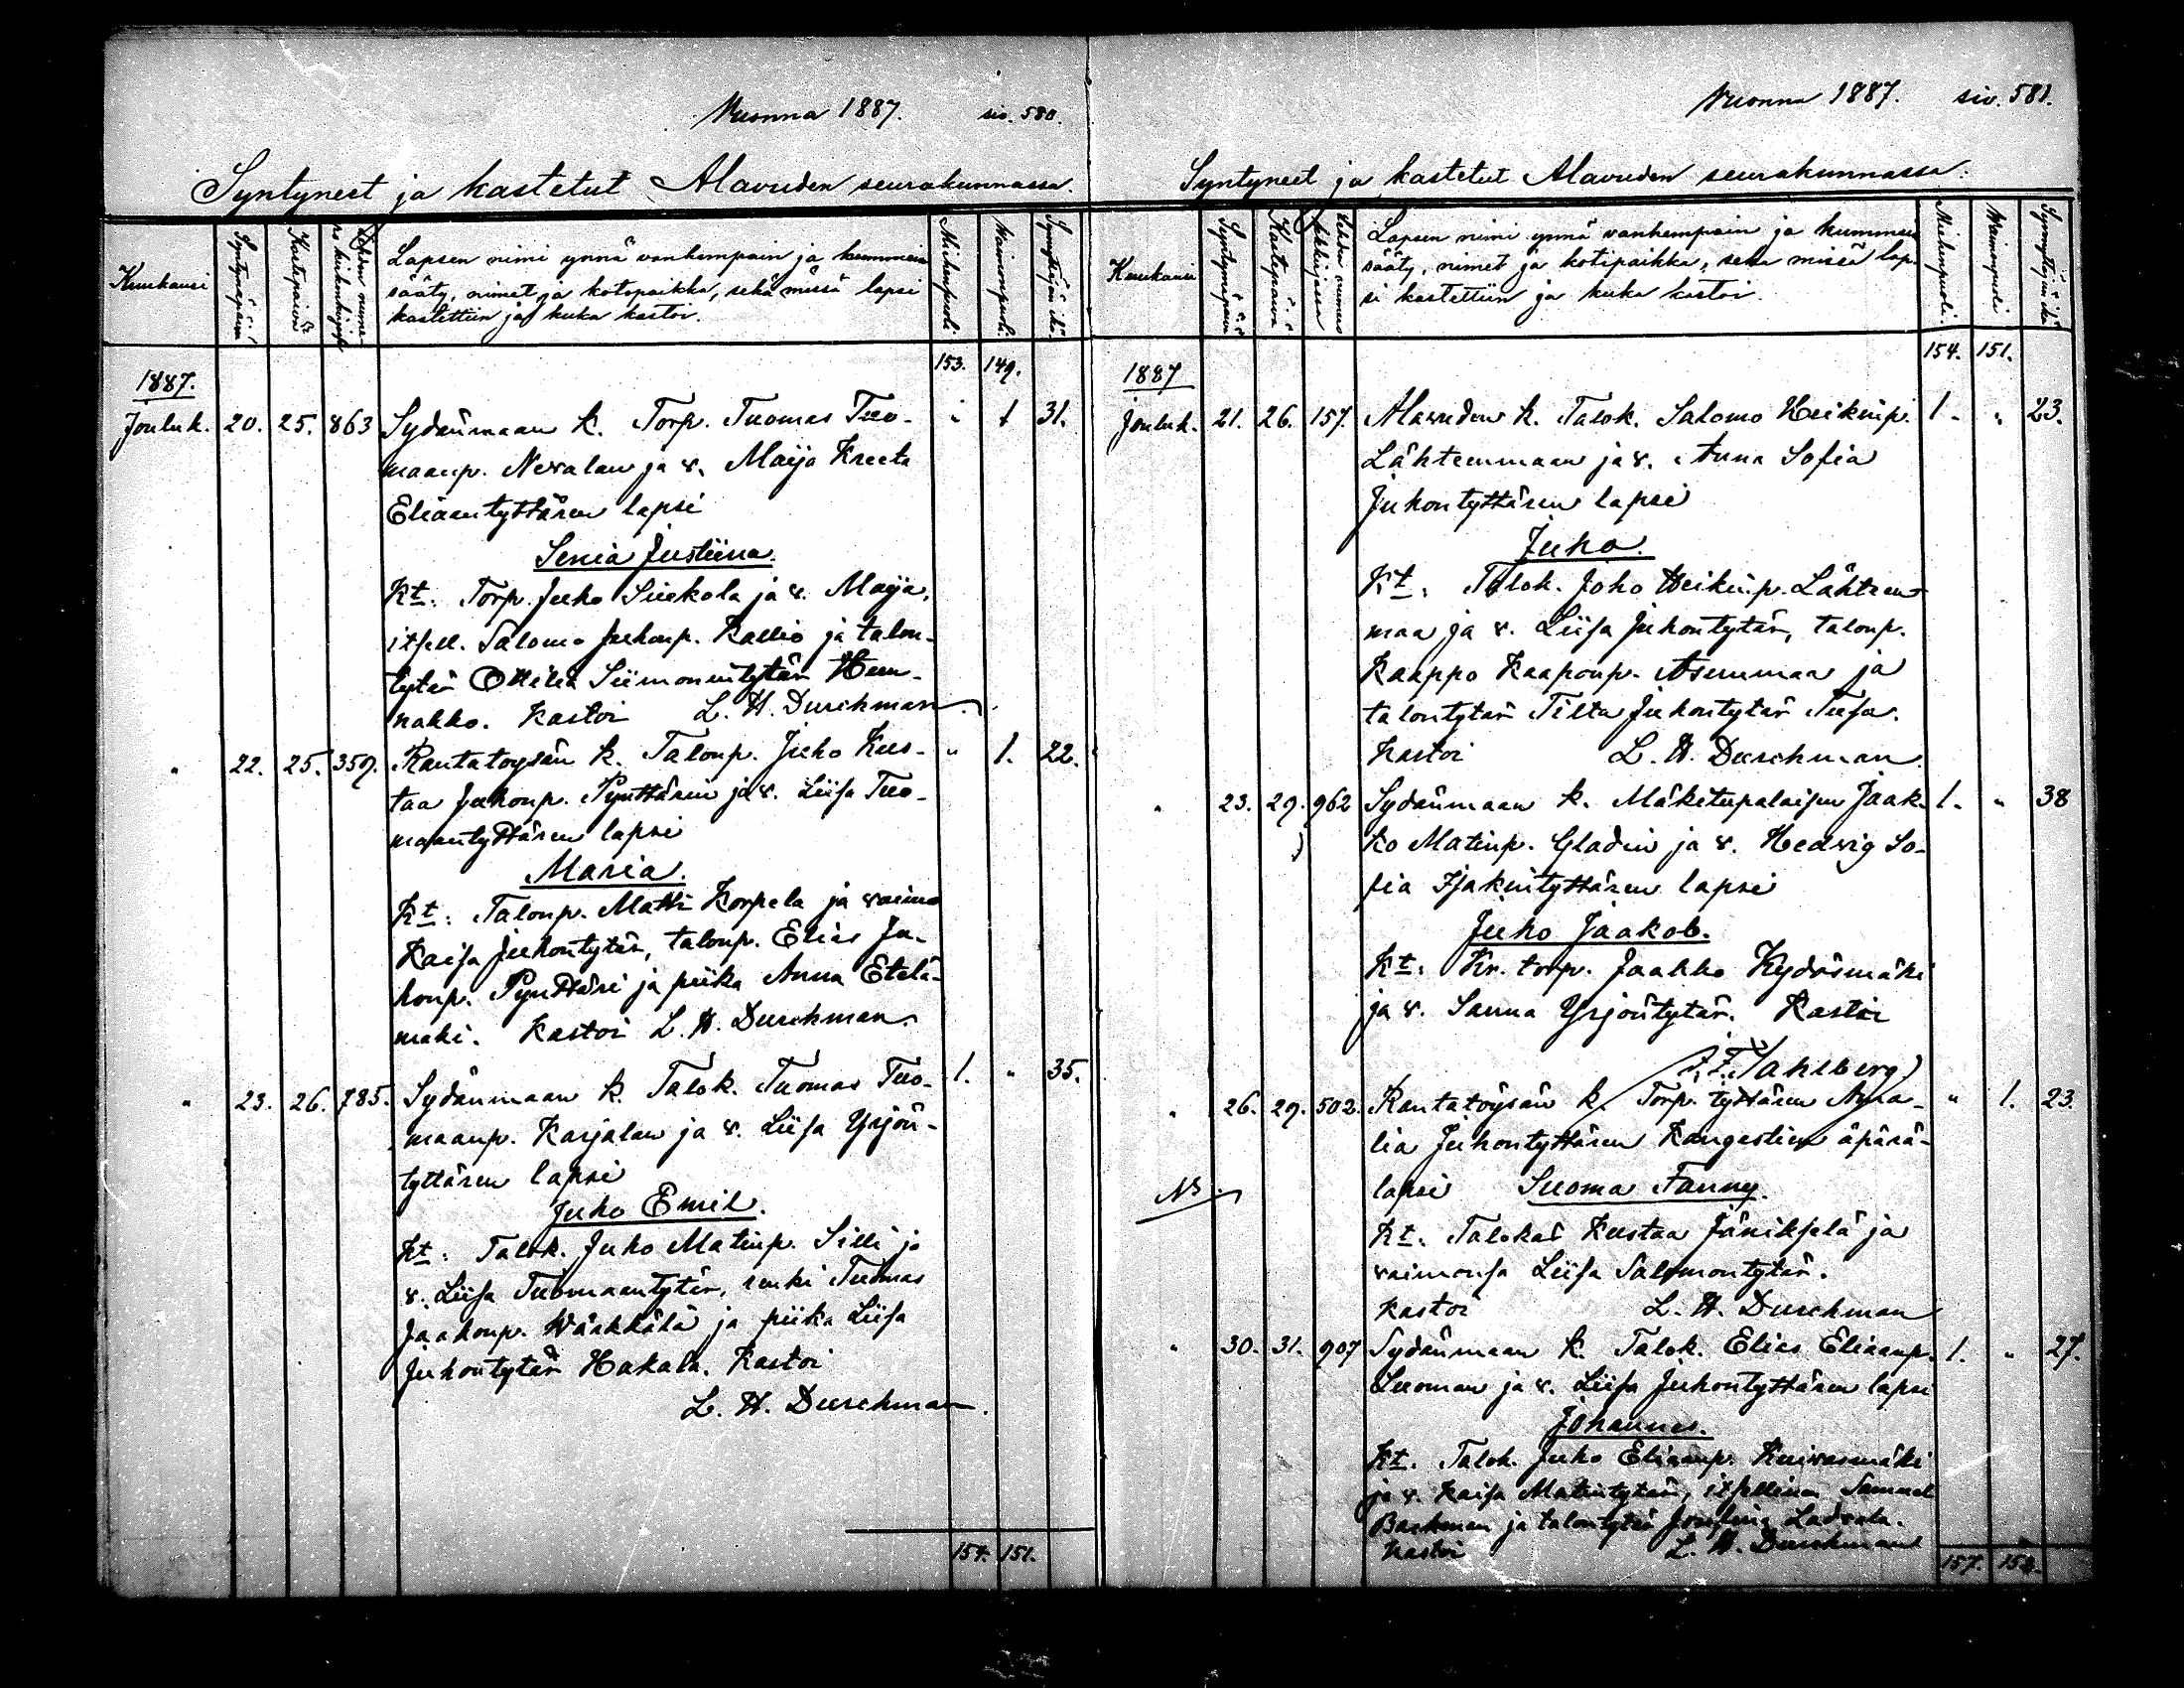 Vuonna 1887. siv. 580.
Syntyneet ja kastetut Alavuden seurakunnassa.
Kuukausi
Syntymäpäivä
Kastepäivä
Lehden numero kirkonkirjassa
Lapsen nimi ynnä vanhempain ja kummein
sääty, nimet ja kotopaikka, sekä missä lapsi
kastettiin ja kuka kastoi.
Miehenpuoli
Waimonpuoli.
Synnyttäjän ikä.
153. 149.
1887.
Jouluk. 20. 25. 863 Sydänmaan k. Torp. Tuomas Tuo- " 1 31.
maanp. Nevalan ja v. Maija Kreeta
Eliaantyttären lapsi
Senia Justiina.
Kt. Torp. Juho Siukola ja v. Maija,
itsell. Salomo Juhonp. Kallio ja talon-
tytär Ottilia Siimonintytär Hem-
nakko. Kastoi L. H. Durchman.
" 22. 25. 359. Rantatöysän k. Talonp. Juho Kus- " 1. 22.
taa Juhonp. Pynttärin ja v. Liisa Tuo-
maantyttären lapsi
Maria.
Kt: Talonp. Matti Korpela ja vaimo
Kaisa Juhontytär, talonp. Elias Ju-
honp. Pynttäri ja piika Anna Etelä-
mäki. Kastoi L. H. Durchman.
" 23. 26. 785. Sydänmaan k. Talok. Tuomas Tuo- 1. " 35.
maanp. Karjalan ja v. Liisa Yrjön-
tyttären lapsi
Juho Emil.
Kt: Talok. Juho Matinp. Silli ja
v. Liisa Tuomaantytär, renki Tuomas
Jaakonp. Wäähkälä ja piika Liisa
Juhontytär Hakala. Kastoi
L. H. Durchman.
154. 151.
Vuonna 1887. siv. 581.
Syntyneet ja kastetut Alavuden seurakunnassa.
Kuukausi
Syntymäpäivä
Kastepäivä
Lehden numero kirkkokirjassa
Lapsen nimi ynnä vanhempain ja kummein
sääty, nimet ja kotipaikka, sekä missä lap-
si kastettiin ja kuka kastoi.
Miehenpuoli.
Waimonpuoli
Synnyttäjän ikä
154. 151.
1887
Jouluk. 21. 26. 157. Alavuden k. Talok. Salomo Heikinp. 1. " 23.
Lähtemmaan ja v. Anna Sofia
Juhontyttären lapsi
Juho.
Kt: Talok. Joho Heikinp. Lähtem-
maa ja v. Liisa Juhontytär, talonp.
Kaappo Kaaponp. Asunmaa ja
talontytär Tilta Juhontytär Tusa.
Kastoi L. H. Durchman.
" 23. 29. 962 Sydänmaan k. Mäkitupalaisen Jaak- 1. " 38
ko Matinp. Gladin ja v. Hedvig So-
fia Isakintyttären lapsi
Juho Jaakob.
Kt: Kr. torp. Jaakko Kydösmäki
ja v. Sanna Yrjöntytär. Kastoi
F. F. Tahlberg
" 26. 29. 502. Rantatöysän k. Torp. tyttären Ama- " 1. 23.
lia Juhontyttären Kangastien äpärä-
NB lapsi Suoma Fanny.
Kt. Talokas Kustaa Jänikselä ja
vaimonsa Liisa Salomontytär.
Kastoi L. H. Durchman
" 30. 31. 907 Sydänmaan k. Talok. Elias Eliaanp. 1. " 27.
Luoman ja v. Liisa Juhontyttären lapsi
Johannes.
Kt. Talok. Juho Eliaanp. Kuivasmäki
ja v. Kaisa Matintytär, itsellinen Samuel
Backman ja talontytär Josefina Ladvala.
Kastoi L. H. Durchman
157. 152.